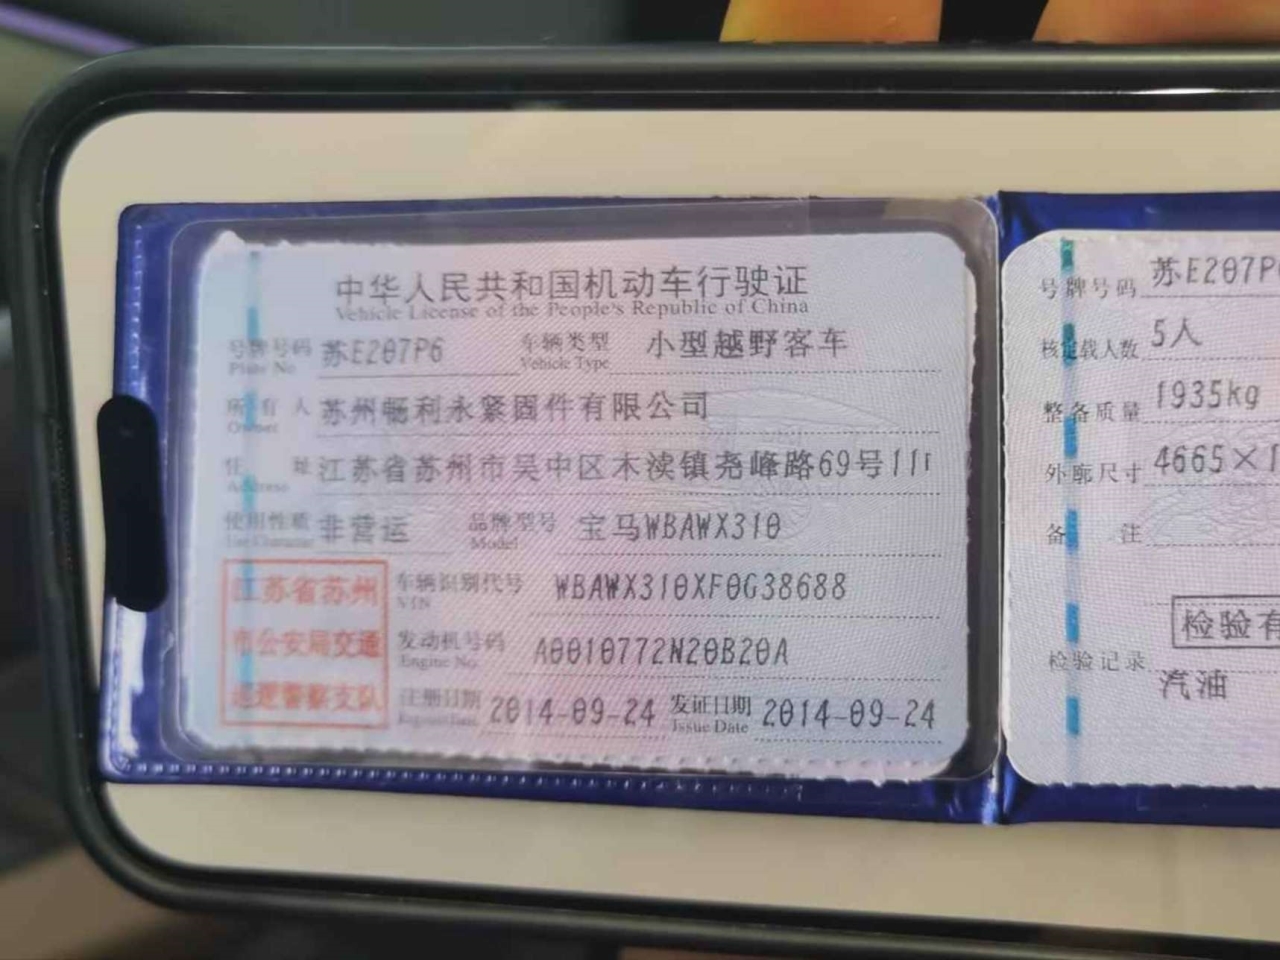 中华人民共和国机动车行驶证
Vehicle License of the People's Republic of China
号牌号码 苏E207P6 车辆类型 小型越野客车
Plate No Vehicle Type
所有人 苏州畅利永紧固件有限公司
Owner
住址 江苏省苏州市吴中区木渎镇尧峰路69号11
Address
使用性质 非营运 品牌型号 宝马WBAWX310
Use Character Model
江苏省苏州
市公安局交通
巡逻警察支队
车辆识别代号 WBAWX310XF0G38688
VIN
发动机号码 A0010772N20B20A
Engine No.
注册日期 2014-09-24 发证日期 2014-09-24
Register Date Issue Date
号牌号码 苏E207P
核定载人数 5人
整备质量 1935kg
外廓尺寸 4665×1
备注
检验有
检验记录
汽油